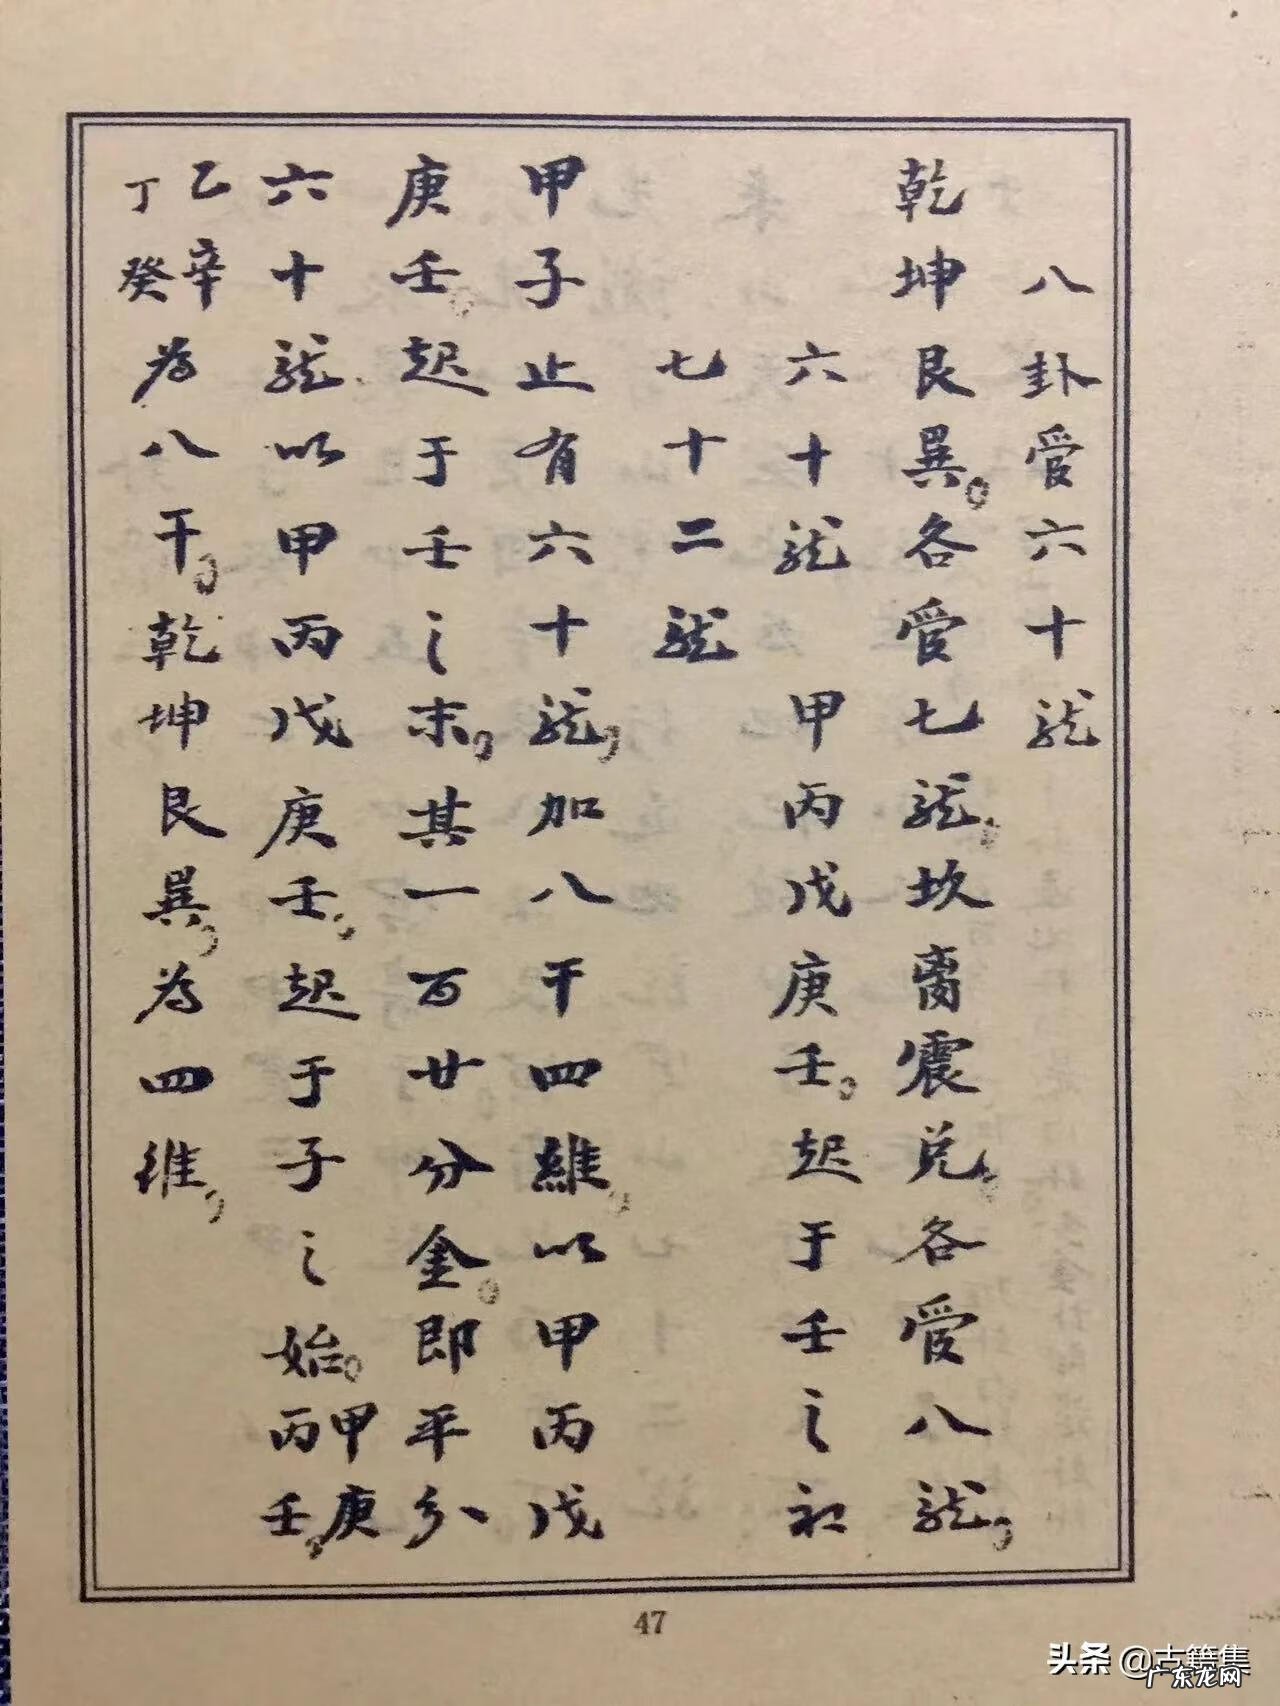 八卦管六十龍
乾坤艮巽。各管七龍，坎离震兑，各管八龍，
六十龍 甲丙戊庚壬。起于壬之初
七十二龍
甲子止有六十龍，加八干四維，以甲丙戊
庚壬。起于壬之末，其一百廿分金。即平分
六十龍以甲丙戊庚壬，起于子之始。甲庚丙壬，
乙辛丁癸为八干，乾坤艮巽，为四维，
47
头条 @古籍集
广东龙网